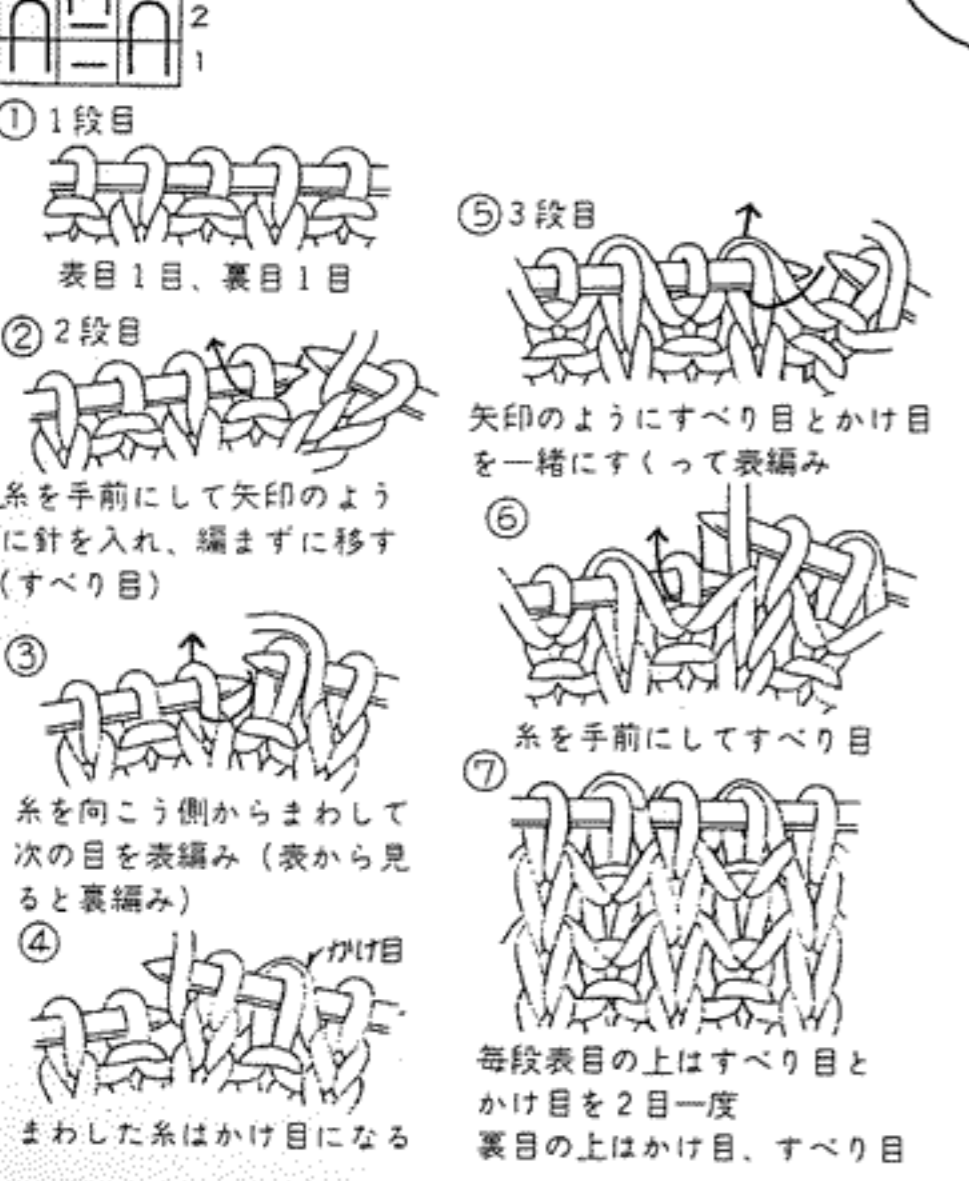 2
1
① 1段目
表目1目、裏目1目
② 2段目
糸を手前にして矢印のよう
に針を入れ、編まずに移す
(すべり目)
③
糸を向こう側からまわして
次の目を表編み（表から見
ると裏編み）
④
かけ目
まわした糸はかけ目になる
⑤ 3段目
矢印のようにすべり目とかけ目
を一緒にすくって表編み
⑥
糸を手前にしてすべり目
⑦
毎段表目の上はすべり目と
かけ目を2目一度
裏目の上はかけ目、すべり目